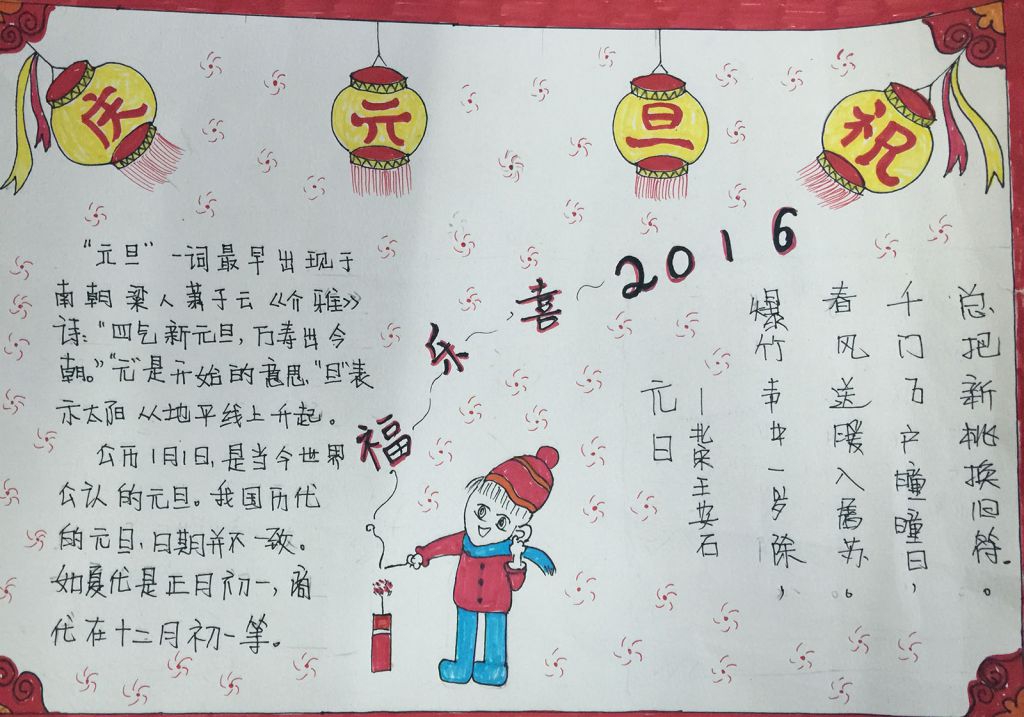 庆元旦祝
福乐喜2016
“元旦”一词最早出现于
南朝梁人萧子云《介雅》
诗:“四气新元旦,万寿出今
朝。”“元”是开始的意思,“旦”表
示太阳从地平线上升起。
公历1月1日,是当今世界
公认的元旦。我国历代
的元旦,日期并不一致。
如夏代是正月初一,商
代在十二月初一等。
元日
—北宋王安石
爆竹声中一岁除,
春风送暖入屠苏。
千门万户瞳瞳日,
总把新桃换旧符。